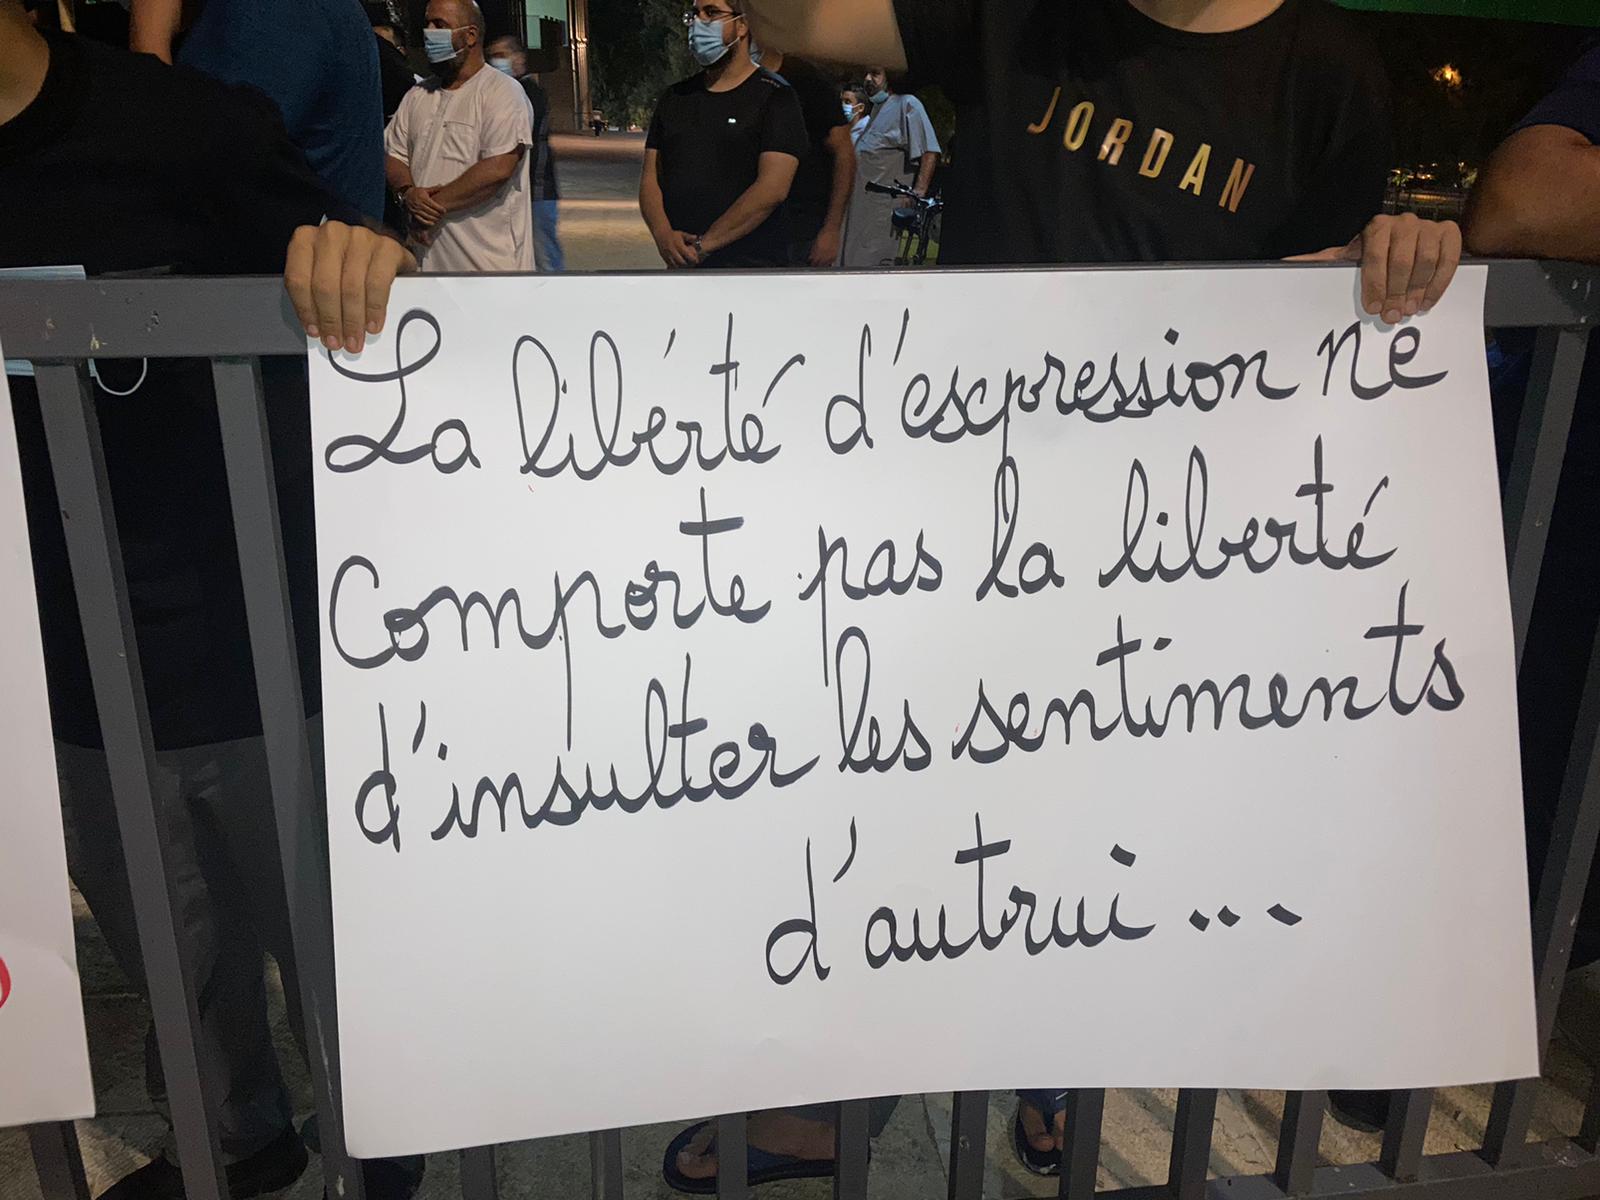 JORDAN
La libérté d'escpression ne
Comporte pas la liberté
d'insulter les sentiments
d'autrui...